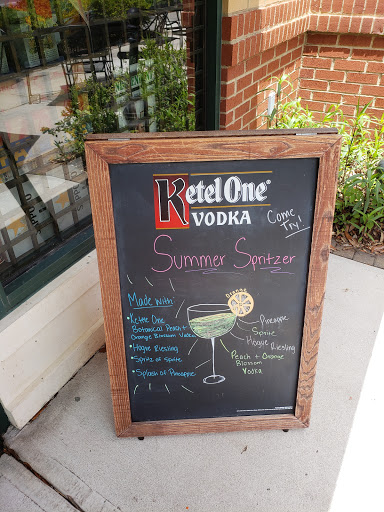 Ketel One®
VODKA
Come
Try!
Summer Spritzer
Made with:
• Ketel One
Botanical Peach +
Orange Blossom Vodka
• Hogue Riesling
• Spritz of Sprite
• Splash of Pineapple
Orange
Pineapple
Sprite
Hogue Riesling
Peach + Orange
Blossom
Vodka